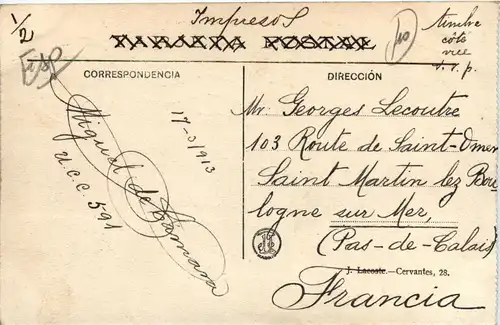 Impresos
1/2
TARJETA POSTAL
10
timbre
côté
vue
s. v. p.
ESP
CORRESPONDENCIA
DIRECCIÓN
17-3/913
Miguel de Camara
U.C.C. 591
Mr. Georges Lecoutre
103 Route de Saint-Omer
Saint Martin lez Bou-
logne sur Mer,
(Pas-de-Calais)
J. Lacoste.—Cervantes, 28.
Francia